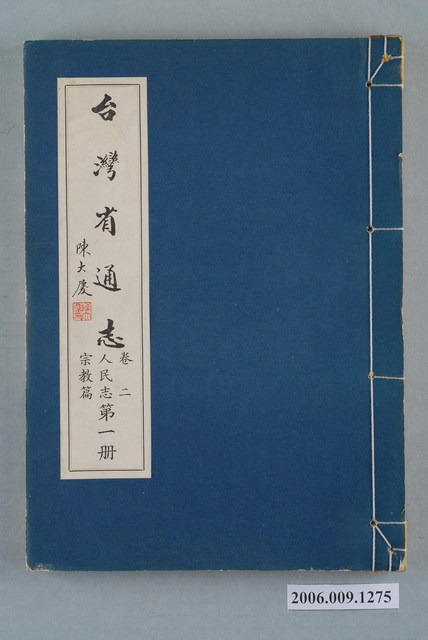 台灣省通志
卷二
人民志
宗教篇
第一冊
陳大慶
2006.009.1275